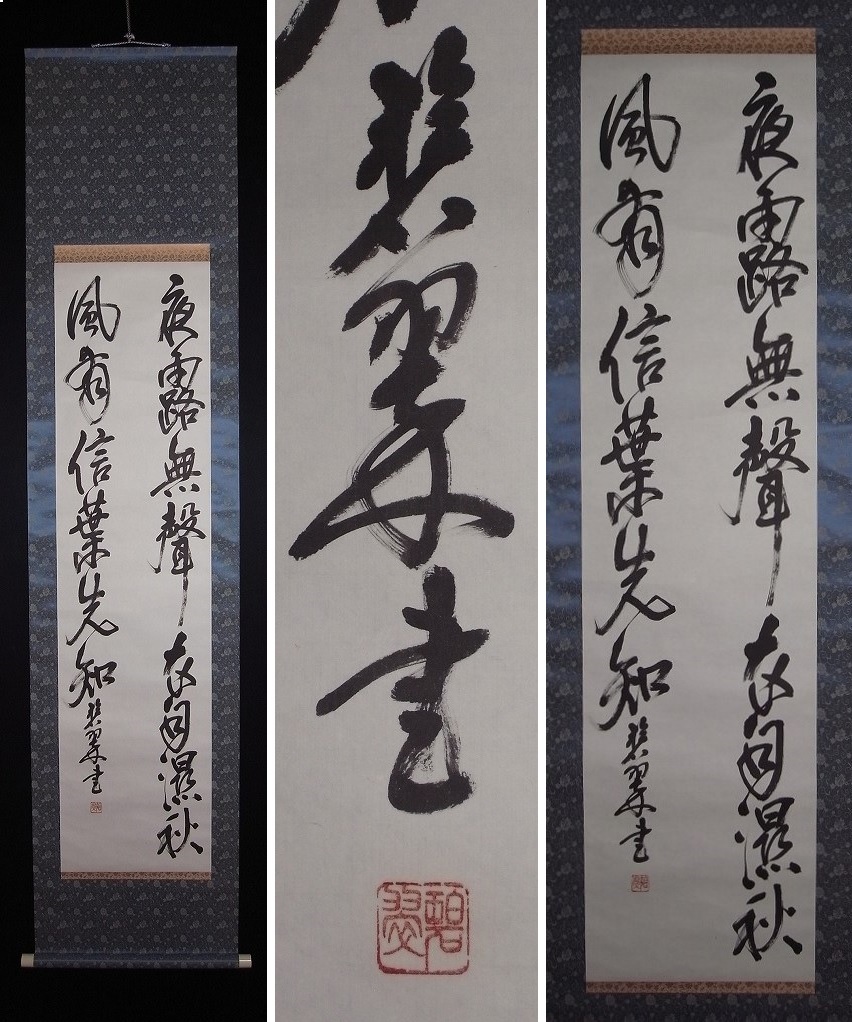 夜露無聲衣自濕秋
風有信葉先知
碧翠書
碧翠書
碧翠
夜露無聲衣自濕秋
風有信葉先知
碧翠書